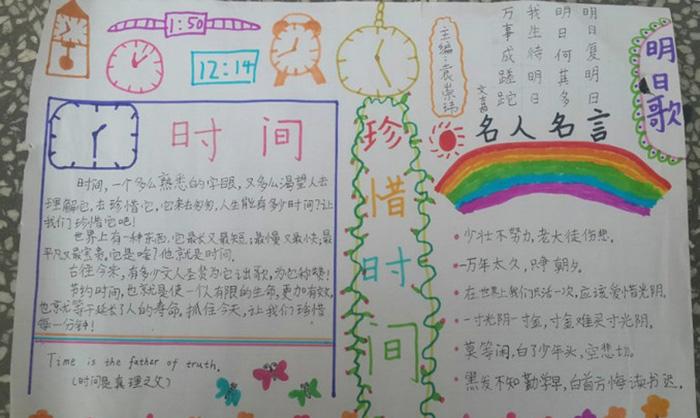 1:50
12:14
主编:袁崇玮
明日复明日
明日何其多
我生待明日
万事成蹉跎
文嘉
明日歌
时间
时间,一个多么熟悉的字眼,又多么渴望人去
理解它,去珍惜它,它来去匆匆,人生能有多少时间?让
我们珍惜它吧!
世界上有一种东西,它最长又最短;最慢又最快;最
平凡又最宝贵,它是啥?他就是时间.
古往今来,有多少文人圣贤为它讴歌,为它吟颂!
节约时间,也就是使一个人有限的生命,更加有效,
也就等于延长了人的寿命,抓住今天,让我们珍惜
每一分钟!
Time is the father of truth.
(时间是真理之父)
珍惜时间
名人名言
少壮不努力,老大徒伤悲.
一万年太久,只争朝夕。
在世界上我们只活一次,应该爱惜光阴.
一寸光阴一寸金,寸金难买寸光阴.
莫等闲,白了少年头,空悲切.
黑发不知勤学早,白首方悔读书迟.